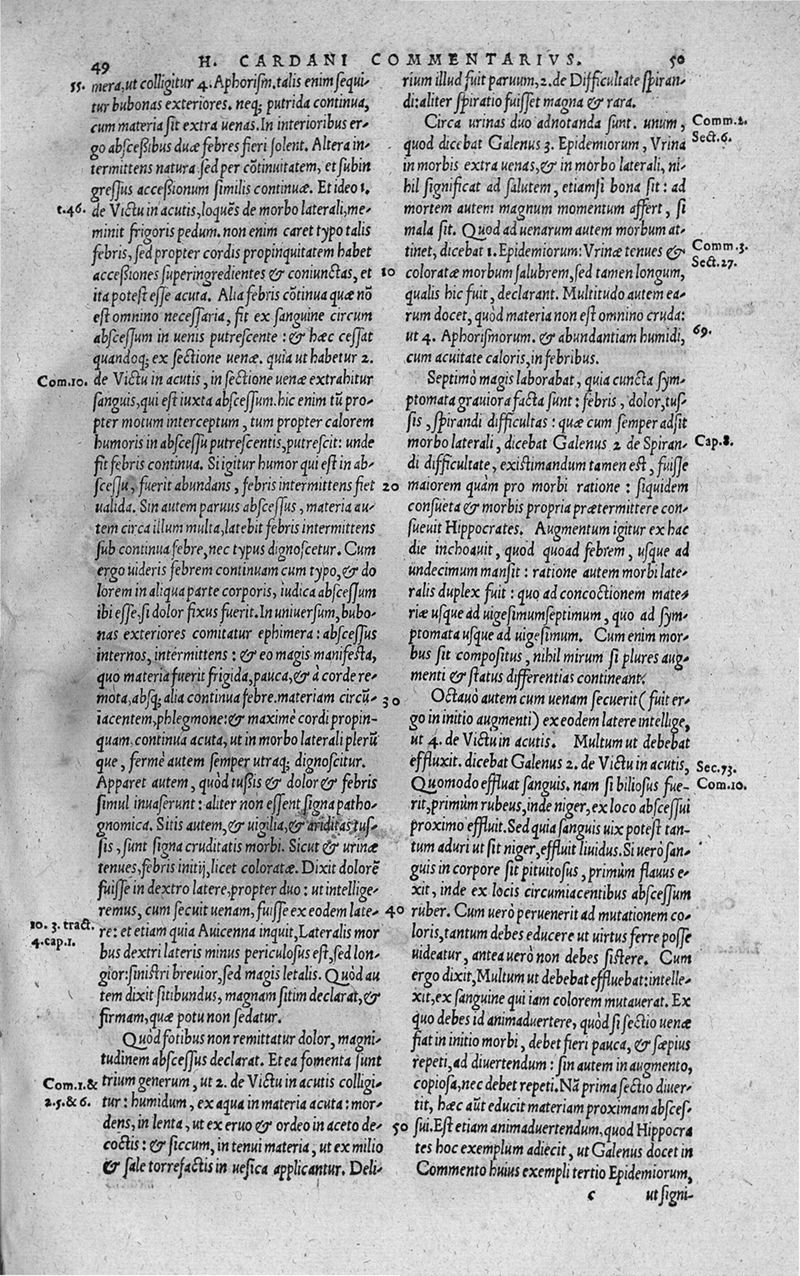 49
H. CARDANI COMMENTARIVS.
50
55. mera, ut colligitur 4. Aphorism. talis enim sequi-
tur bubonas exteriores. neq; putrida continua,
cum materia sit extra uenas. In interioribus er-
go abscessibus duæ febres fieri solent. Altera in-
termittens natura sed per cõtinuitatem, et subin
gressus accessionum similis continuæ. Et ideo 1.
t.46. de Victu in acutis, loquẽs de morbo laterali, me-
minit frigoris pedum. non enim caret typo talis
febris, sed propter cordis propinquitatem habet
accessiones superingredientes & coniunctas, et
ita potest esse acuta. Alia febris cõtinua quæ nõ
est omnino necessaria, fit ex sanguine circum
abscessum in uenis putrescente: & hæc cessat
quandoq; ex sectione uenæ. quia ut habetur 2.
Com.10. de Victu in acutis, in sectione uenæ extrahitur
sanguis, qui est iuxta abscessum. hic enim tũ pro-
pter motum interceptum, tum propter calorem
humoris in abscessu putrescentis, putrescit: unde
fit febris continua. Si igitur humor qui est in ab-
scessu, fuerit abundans, febris intermittens fiet
ualida. Sin autem paruus abscessus, materia au-
tem circa illum multa, latebit febris intermittens
sub continua febre, nec typus dignoscetur. Cum
ergo uideris febrem continuam cum typo, & do
lorem in aliqua parte corporis, iudica abscessum
ibi esse, si dolor fixus fuerit. In uniuersum, bubo-
nas exteriores comitatur ephimera: abscessus
internos, intermittens: & eo magis manifesta,
quo materia fuerit frigida, pauca, & à corde re-
mota, absq; alia continua febre. materiam circũ-
iacentem, phlegmone: & maximè cordi propin-
quam, continua acuta, ut in morbo laterali plerũ
que, fermè autem semper utraq; dignoscitur.
Apparet autem, quòd tussis & dolor & febris
simul inuaserunt: aliter non essent signa patho-
gnomica. Sitis autem, & uigilia, & ariditas tus-
sis, sunt signa cruditatis morbi. Sicut & urinæ
tenues, febris initij, licet coloratæ. Dixit dolorẽ
fuisse in dextro latere, propter duo: ut intellige-
remus, cum secuit uenam, fuisse ex eodem late-
10. 3. tract. 4.cap.1. re: et etiam quia Auicenna inquit, Lateralis mor
bus dextri lateris minus periculosus est, sed lon-
gior: sinistri breuior, sed magis letalis. Quòd au
tem dixit sitibundus, magnam sitim declarat, &
firmam, quæ potu non sedatur.
Quòd fotibus non remittatur dolor, magni-
tudinem abscessus declarat. Et ea fomenta sunt
Com.1.& 2.5.& 6. trium generum, ut 2. de Victu in acutis colligi-
tur: humidum, ex aqua in materia acuta: mor-
dens, in lenta, ut ex eruo & ordeo in aceto de-
coctis: & siccum, in tenui materia, ut ex milio
& sale torrefactis in uesica applicantur. Deli-
rium illud fuit paruum, 2. de Difficultate spiran-
di: aliter spiratio fuisset magna & rara.
Circa urinas duo adnotanda sunt. unum, Comm.2. Sect.6.
quod dicebat Galenus 3. Epidemiorum, Vrina
in morbis extra uenas, & in morbo laterali, ni-
hil significat ad salutem, etiamsi bona sit: ad
mortem autem magnum momentum affert, si
mala sit. Quod ad uenarum autem morbum at-
tinet, dicebat 1. Epidemiorum: Vrinæ tenues & Comm.3. Sect.27.
10 coloratæ morbum salubrem, sed tamen longum,
qualis hic fuit, declarant. Multitudo autem ea-
rum docet, quòd materia non est omnino cruda:
ut 4. Aphorismorum. & abundantiam humidi, 69.
cum acuitate caloris, in febribus.
Septimò magis laborabat, quia cuncta sym-
ptomata grauiora facta sunt: febris, dolor, tus-
sis, spirandi difficultas: quæ cum semper adsit
morbo laterali, dicebat Galenus 2 de Spiran- Cap.8.
di difficultate, existimandum tamen est, fuisse
20 maiorem quàm pro morbi ratione: siquidem
consueta & morbis propria prætermittere con-
sueuit Hippocrates. Augmentum igitur ex hac
die inchoauit, quod quoad febrem, usque ad
undecimum mansit: ratione autem morbi late-
ralis duplex fuit: quo ad concoctionem mate-
riæ usque ad uigesimumseptimum, quo ad sym-
ptomata usque ad uigesimum. Cum enim mor-
bus sit compositus, nihil mirum si plures aug-
menti & status differentias contineant.
30 Octauò autem cum uenam secuerit (fuit er-
go in initio augmenti) ex eodem latere intellige,
ut 4. de Victu in acutis. Multum ut debebat
effluxit. dicebat Galenus 2. de Victu in acutis, Sec.73.
Quomodo effluat sanguis. nam si biliosus fue- Com.10.
rit, primùm rubeus, inde niger, ex loco abscessui
proximo effluit. Sed quia sanguis uix potest tan-
tum aduri ut sit niger, effluit liuidus. Si uerò san-
guis in corpore sit pituitosus, primùm flauus e-
xit, inde ex locis circumiacentibus abscessum
40 ruber. Cum uerò peruenerit ad mutationem co-
loris, tantum debes educere ut uirtus ferre posse
uideatur, antea uerò non debes sistere. Cum
ergo dixit, Multum ut debebat effluebat: intelle-
xit, ex sanguine qui iam colorem mutauerat. Ex
quo debes id animaduertere, quòd si sectio uenæ
fiat in initio morbi, debet fieri pauca, & sæpius
repeti, ad diuertendum: sin autem in augmento,
copiosa, nec debet repeti. Nã prima sectio diuer-
tit, hæc aũt educit materiam proximam absces-
50 sui. Est etiam animaduertendum, quod Hippocra
tes hoc exemplum adiecit, ut Galenus docet in
Commento huius exempli tertio Epidemiorum,
c ut signi-